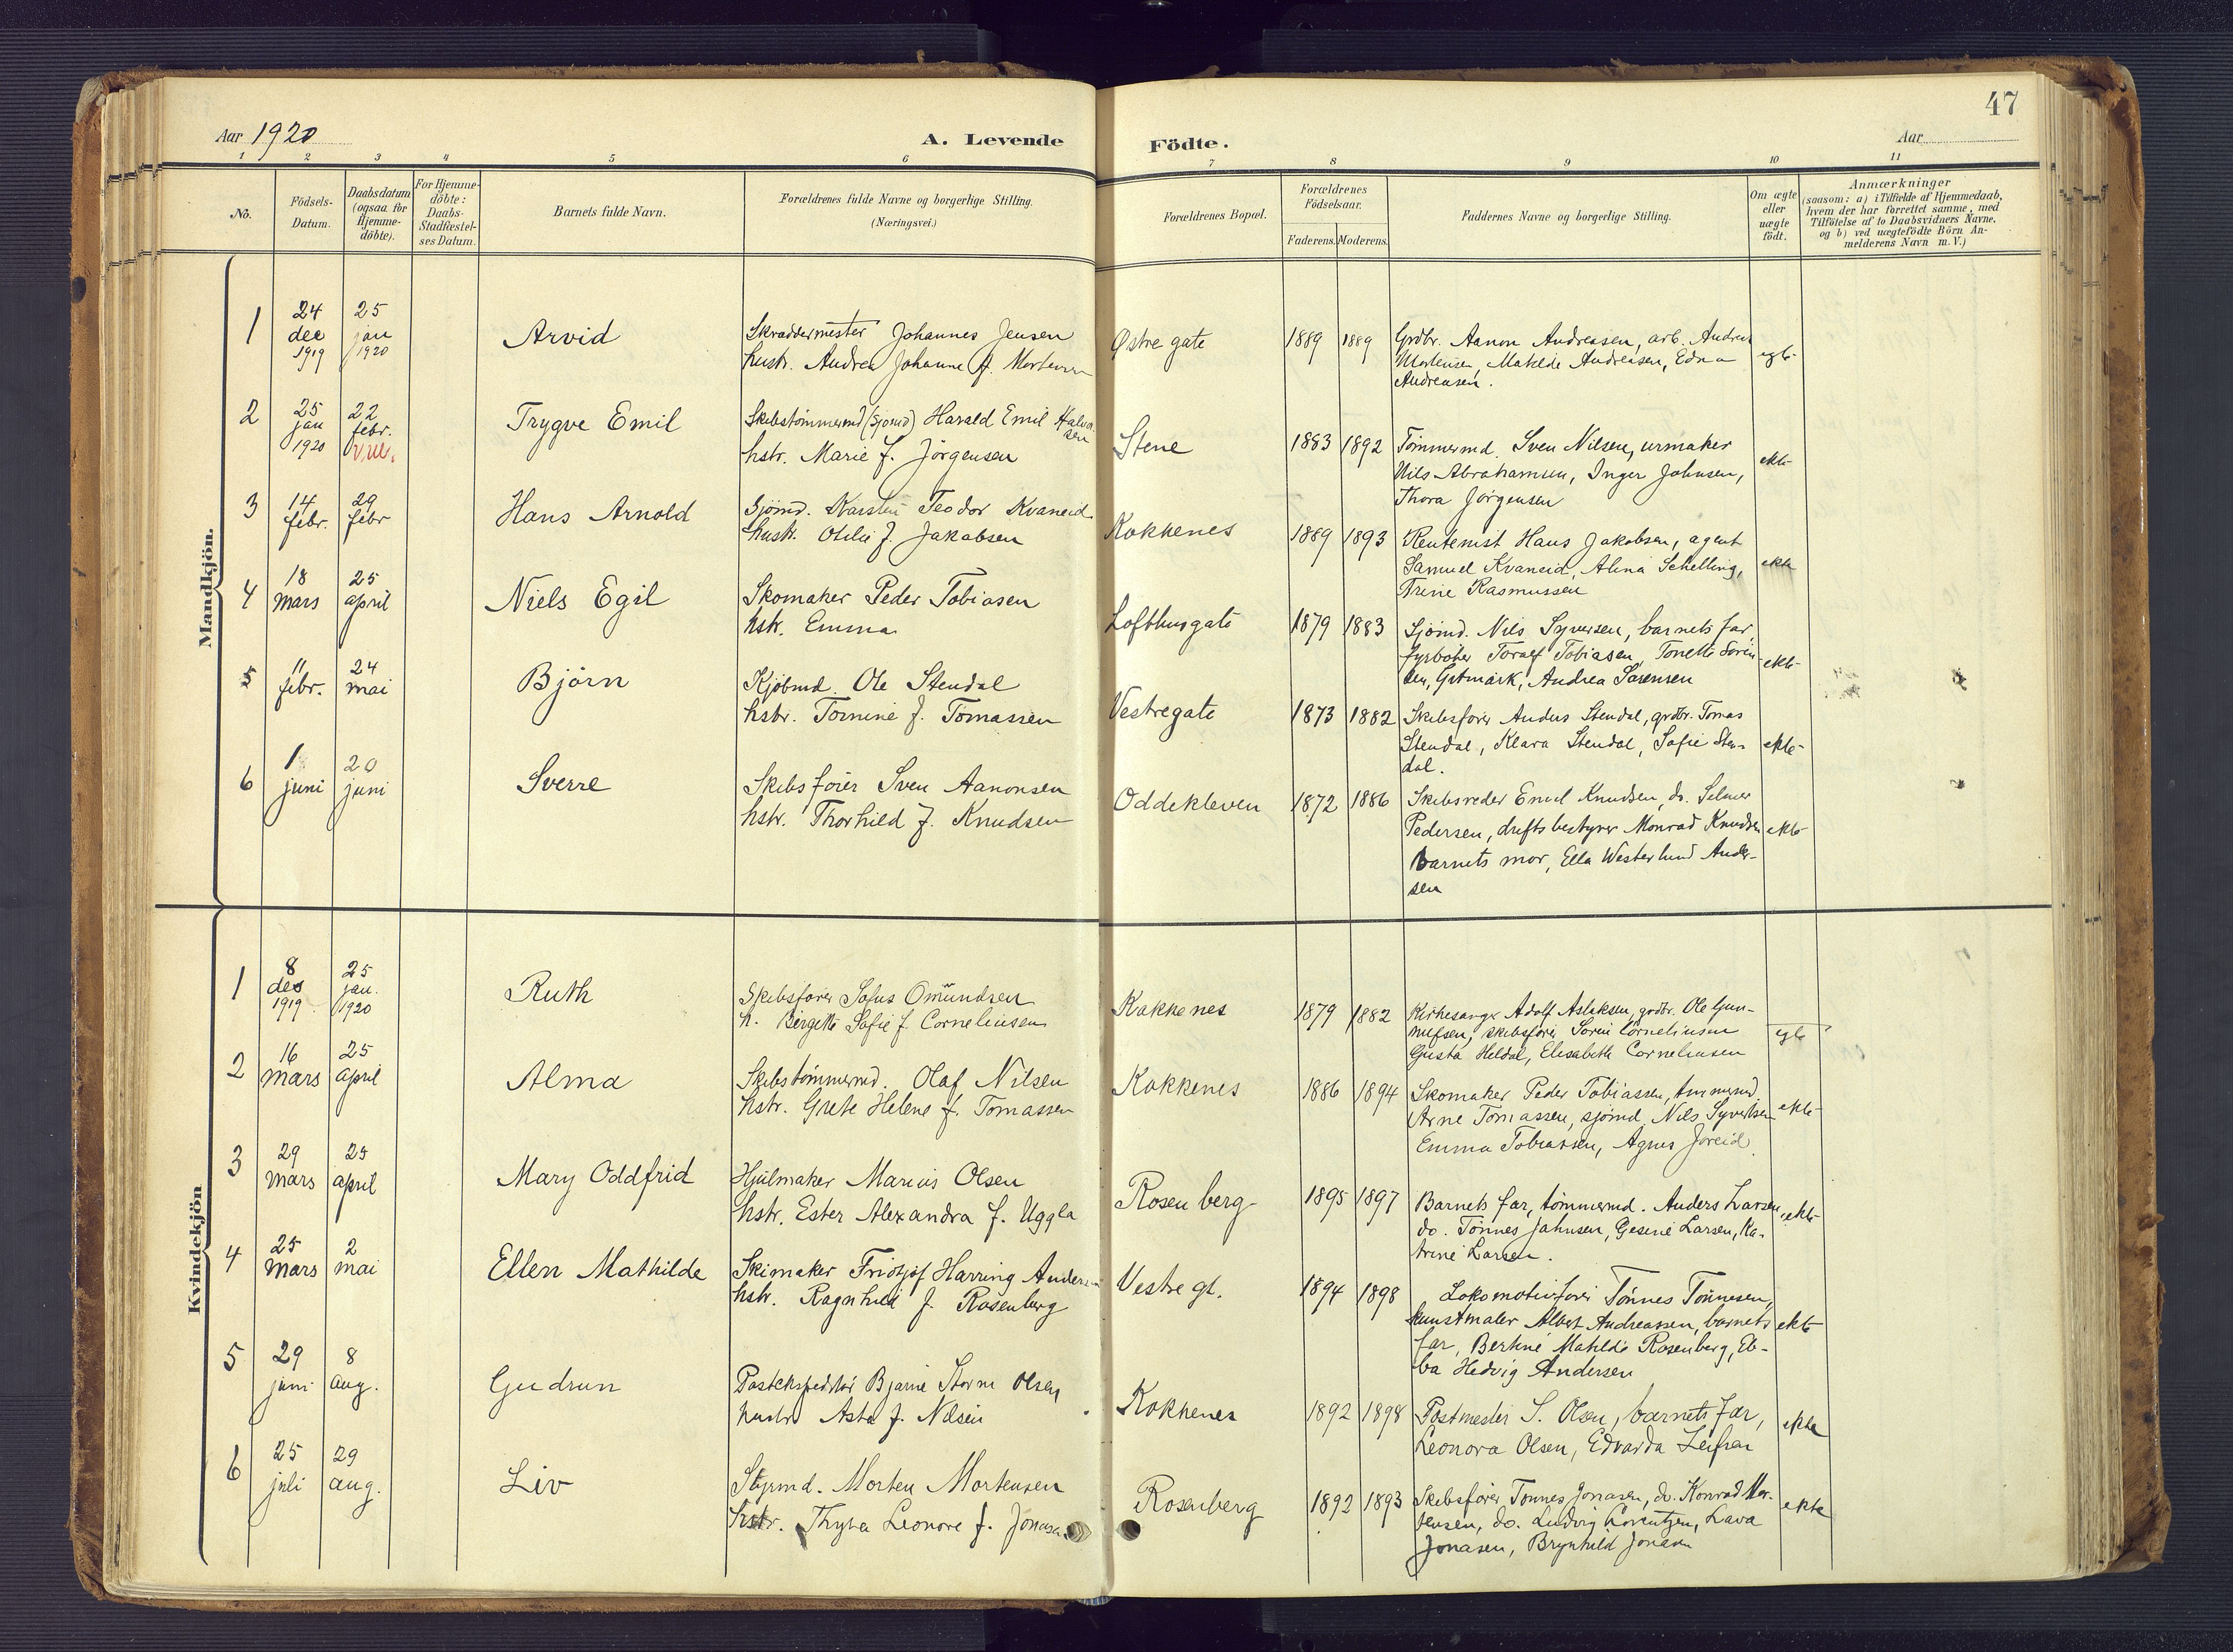 47
Aar 1920
A. Levende Födte.
Aar
1 2 3 4 5 6 7 8 9 10 11
No.
Födsels-
Datum.
Daabsdatum
(ogsaa for
Hjemme-
döbte).
For Hjemme-
döbte:
Daabs-
Stadfæstel-
ses Datum.
Barnets fulde Navn.
Forældrenes fulde Navne og borgerlige Stilling.
(Næringsvei.)
Forældrenes Bopæl.
Forældrenes
Födselsaar.
Faderens. Moderens.
Faddernes Navne og borgerlige Stilling.
Om ægte
eller
uægte
födt.
Anmærkninger
(saasom: a) i Tilfælde af Hjemmedaab,
hvem der har forrettet samme, med
Tilföielse af to Daabsvidners Navne.
og b) ved uægtefödte Börn An-
melderens Navn m. V.)
Mandkjön.
1
24
dec
1919
25
jan
1920
Arvid
Skræddermester Johannes Jensen
hustr. Andrea Johanne f. Mortensen
Østre gate
1889 1889
Grdbr. Aanon Andreasen, arb. Andreas
Mortensen, Matilde Andreasen, Edna
Andreasen.
egte
2
25
jan
1920
22
febr.
Trygve Emil
Skibstømmermd (sjømd) Harald Emil Halvor
sen
hstr. Marie f. Jörgensen
Stene
1883 1892
Tømmermd. Sven Nilsen, urmaker
Nils Abrahamsen, Inger Johnsen,
Thora Jörgensen
ekte
3
14
febr.
29
febr
Hans Arnold
Sjömd. Karsten Teodor Kvaneid
hustr. Otilie f. Jakobsen
Kokkenes
1889 1893
Rentenist Hans Jakobsen, agent
Samuel Kvaneid, Alma Schelling,
Trine Rasmussen
ekte
4
18
mars
25
april
Niels Egil
Skomaker Peder Tobiasen
hstr. Emma
Lofthusgate
1879 1883
Sjömd. Nils Syversen, barnets far,
fyrböter Toralf Tobiasen, Tonette Sören-
sen, Grtmark, Andrea Sørensen
ekte
5
11
febr.
24
mai
Björn
Kjöbmd. Ole Stendal
hstr. Tomine f. Tomassen
Vestregate
1873 1882
Skibsfører Anders Stendal, grdbr. Tomas
Stendal, Klara Stendal, Sofie Sten-
dal.
ekte
6
1
juni
20
juni
Sverre
Skibsförer Sven Aanonsen
hstr. Thorhild f. Knudsen
Oddekleven
1872 1886
Skibsreder Emil Knudsen, do. Selmer
Pedersen, driftsbestyrer Monrad Knudsen
barnets mor, Ella Westerlund Ander-
sen
ekte
Kvindekjön
1
8
des
1919
25
jan.
1920
Ruth
Skibsfører Sofus Omundsen
h. Birgette Sofie f. Corneliusen
Kokkenes
1879 1882
Kirkesanger Adolf Aslaksen, grdbr. Ole Gun-
nufsen, skibsfører Sören Corneliusen
Gusta Heldal, Elisabeth Corneliusen
egte
2
16
mars
25
april
Alma
Skibstømmermd. Olaf Nilsen
hstr. Grete Helene f. Tomassen
Kokkenes
1886 1894
Skomaker Peder Tobiassen, tømmermd.
Arne Tomassen, sjömd. Nils Syvertsen
Emma Tobiassen, Agnes Joreid.
ekte
3
29
mars
25
april
Mary Oddfrid
Hjulmaker Marius Olsen
hstr. Ester Alexandra f. Uggla
Rosenberg
1895 1897
Barnets far, tömmermd. Anders Larsen,
do. Tønnes Jahnsen, Gesine Larsen, Ka-
trine Larsen.
ekte
4
25
mars
2
mai
Ellen Mathilde
Skimaker Fridtjof Harring Andersen
hstr. Ragnhild f. Rosenberg
Vestre gt.
1894 1898
Lokomotivförer Tönnes Tönnesen,
kunstmaler Albert Andreassen, barnets
far, Bertine Matilde Rosenberg, Eb-
ba Hedvig Andersen
ekte
5
29
juni
8
aug.
Gudrun
Postekspeditör Bjarne Storm Olsen
hustr. Asta f. Nilsen
Kokkenes
1892 1898
Postmester S. Olsen, barnets far,
Leonora Olsen, Edvarda
ekte
6
25
juli
29
aug.
Liv
Styrmd. Morten Mortensen
hstr. Thyra Leonore f. Jonasen
Rosenberg
1892 1893
Skibsfører Tønnes Jonasen, do. Konrad Mor-
tensen, do. Ludvig Lorentzen, Lava
Jonasen, Brynhild Jonasen
ekte